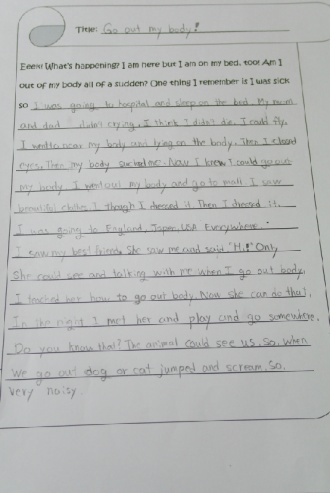 Title: Go out my body!
Eeek! What's happening? I am here but I am on my bed, too! Am I
out of my body all of a sudden? One thing I remember is I was sick
so I was going to hospital and sleep on the bed. My mom
and dad didn't crying. I think I didn't die. I could fly.
I went to near my body and lying on the body. Then I closed
eyes. Then my body sucked me. Now I knew I could go out
my body. I went out my body and go to mall. I saw
beautiful clothes. I though I dressed it. Then I dressed it.
I was going to England, Japen, USA Everywhere.
I saw my best friend. She saw me and said "Hi!" Only
She could see and talking with me when I go out body,
I teached her how to go out body. Now she can do that.
In the night I met her and play and go somewhere.
Do you know that? The animal could see us. So, when
we go out dog or cat jumped and scream. So,
very noisy